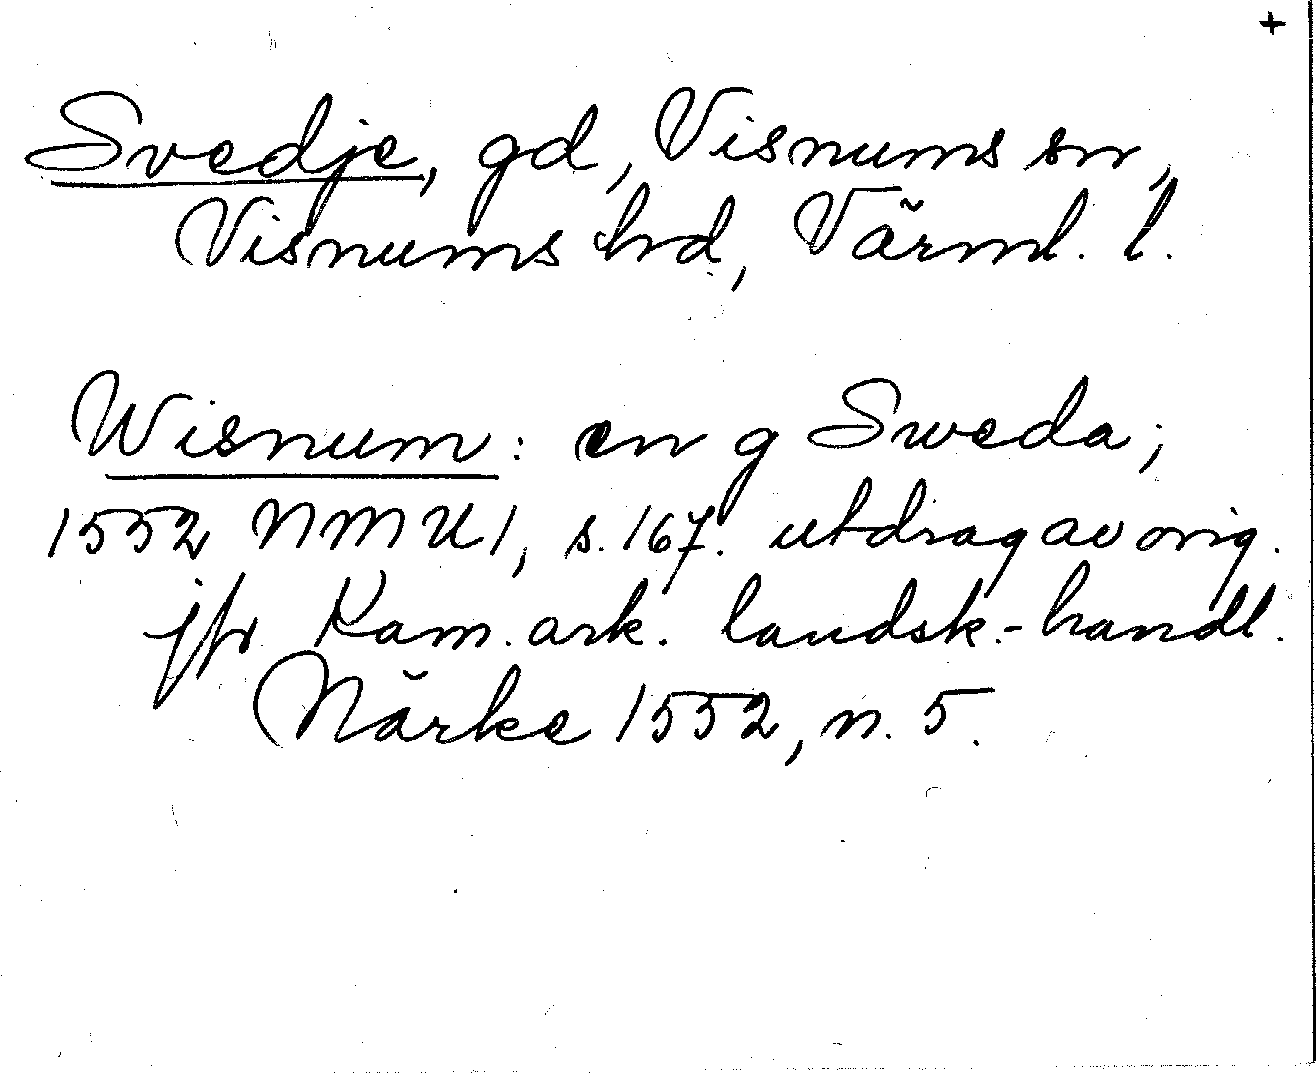 +
Svedje, gd, Visnums sn,
Visnums hd, Värml. l.
Wisnum: en g Sweda;
1552 NMU1, s. 167. utdrag av orig.
jfr Kam. ark. landsk.-handl.
Närke 1552, n. 5.